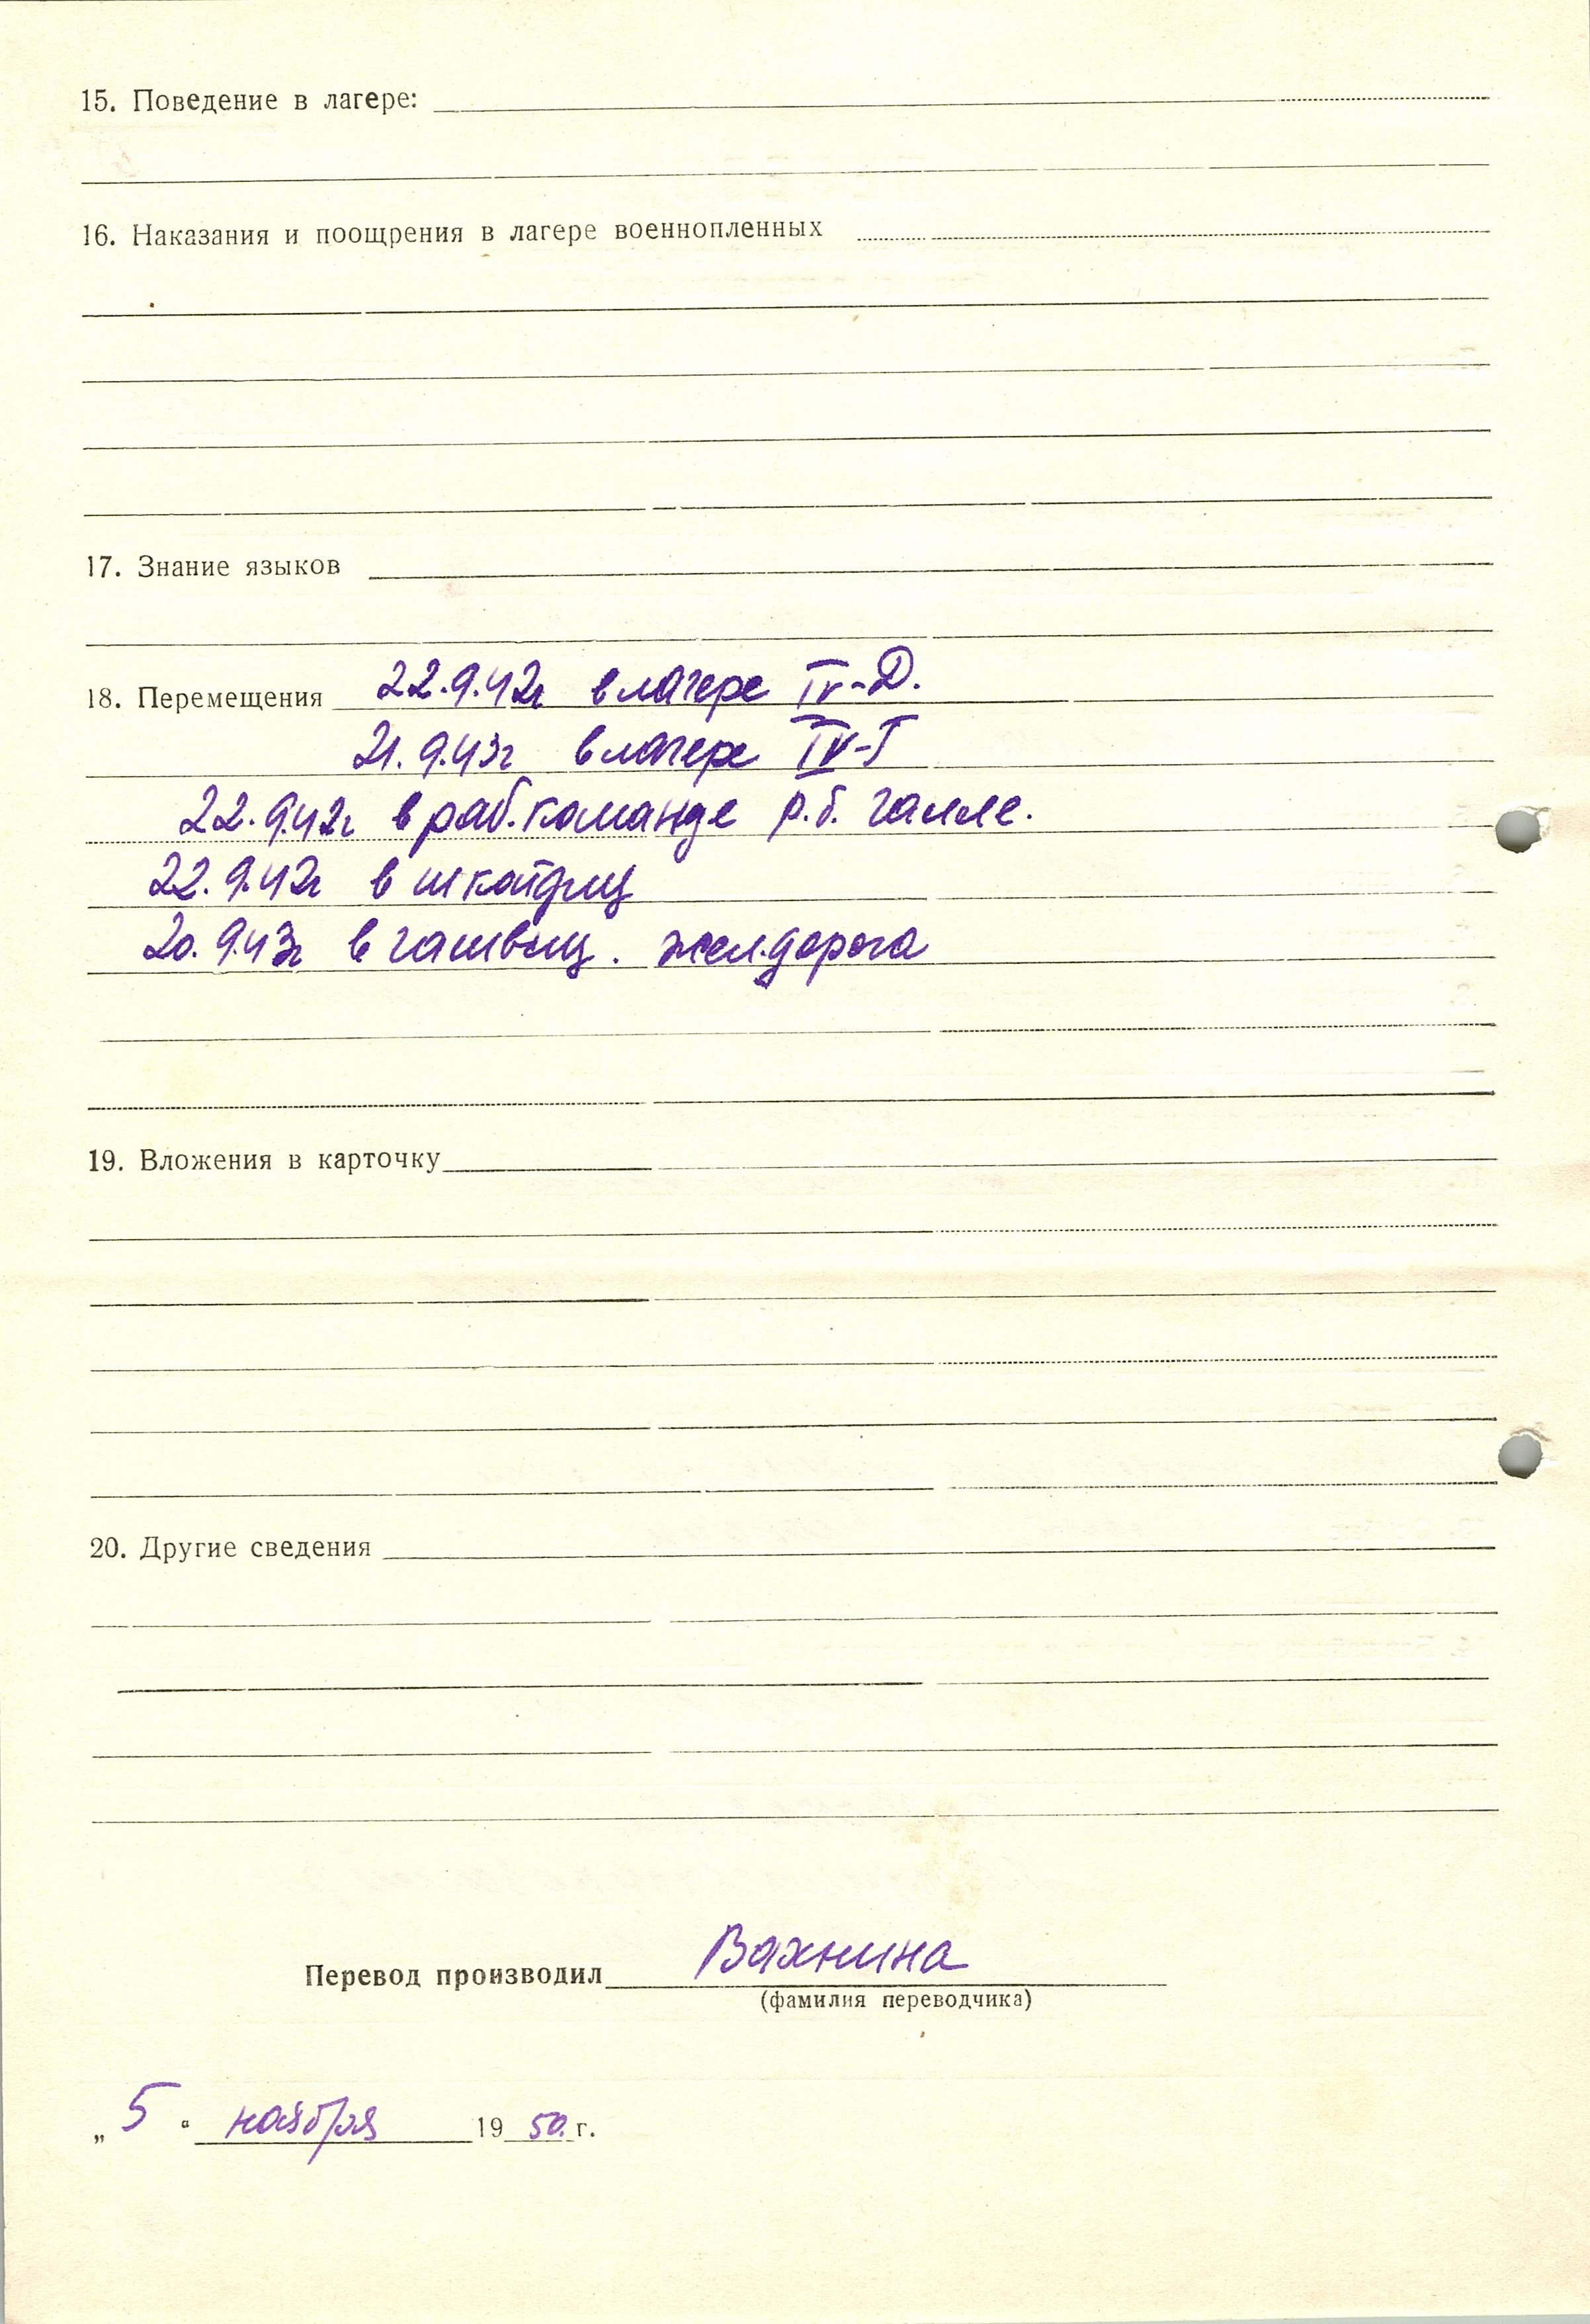 15. Поведение в лагере:
16. Наказания и поощрения в лагере военнопленных
17. Знание языков
18. Перемещения 22.9.42г в лагере IV-D.
21.9.43г в лагере IV-Г
22.9.42г в раб.команде р.б. галле.
22.9.42г в шкойдиц
20.9.43г в гашвиц. жел.дорога
19. Вложения в карточку
20. Другие сведения
Перевод производил Вахнина
(фамилия переводчика)
„5" ноября 1950.г.